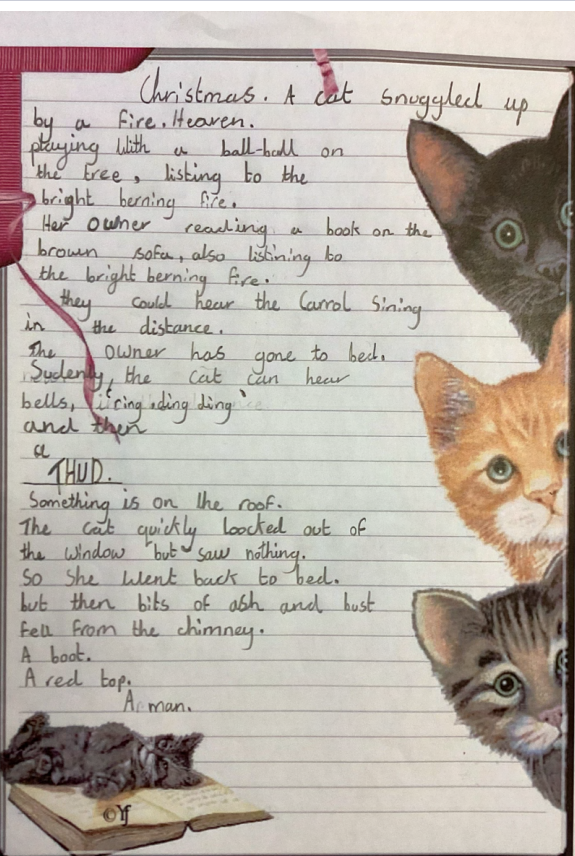 Christmas. A cat snuggled up
by a fire. Heaven.
playing with a ball-ball on
the tree, listing to the
bright berning fire.
Her owner reading a book on the
brown sofa, also listining to
the bright berning fire.
they could hear the Carrol Sining
in the distance.
The owner has gone to bed.
Sudenly, the cat can hear
bells, "ring ding ding"
and then
a
THUD.
Something is on the roof.
The cat quickly loocked out of
the window but saw nothing.
So she went back to bed.
but then bits of ash and bust
fell from the chimney.
A boot.
A red top.
A man.
©Yf